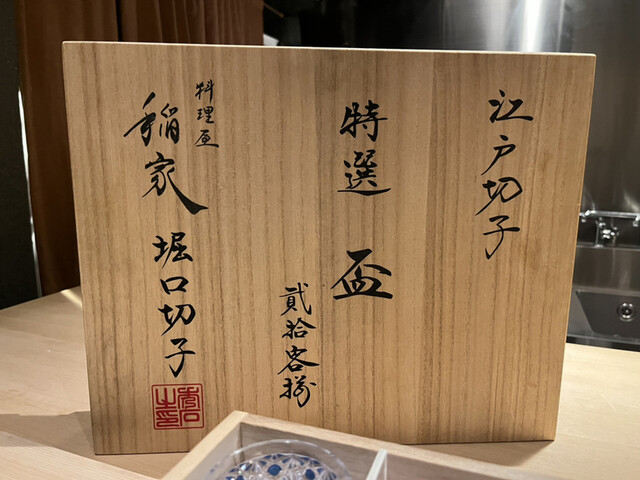 江戸切子
特選 盃
貮拾客揃
料理屋
稲家
堀口切子